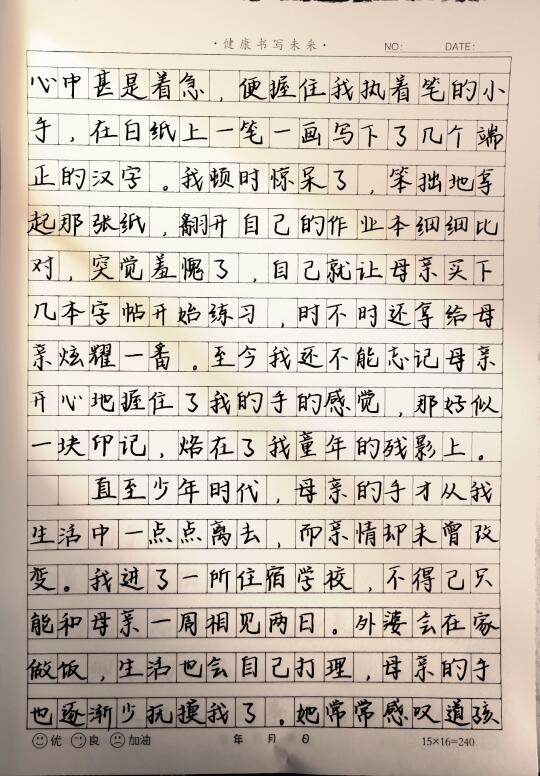 ·健康书写未来·
NO: DATE:
心中甚是着急，便握住我执着笔的小
手，在白纸上一笔一画写下了几个端
正的汉字。我顿时惊呆了，笨拙地拿
起那张纸，翻开自己的作业本细细比
对，突觉羞愧了，自己就让母亲买下
几本字帖开始练习，时不时还拿给母
亲炫耀一番。至今我还不能忘记母亲
开心地握住了我的手的感觉，那好似
一块印记，烙在了我童年的残影上。
直至少年时代，母亲的手才从我
生活中一点点离去，而亲情却未曾改
变。我进了一所住宿学校，不得已只
能和母亲一周相见两日。外婆会在家
做饭，生活也会自己打理，母亲的手
也逐渐少抚摸我了。她常常感叹道孩
优 良 加油 年 月 日 15×16=240